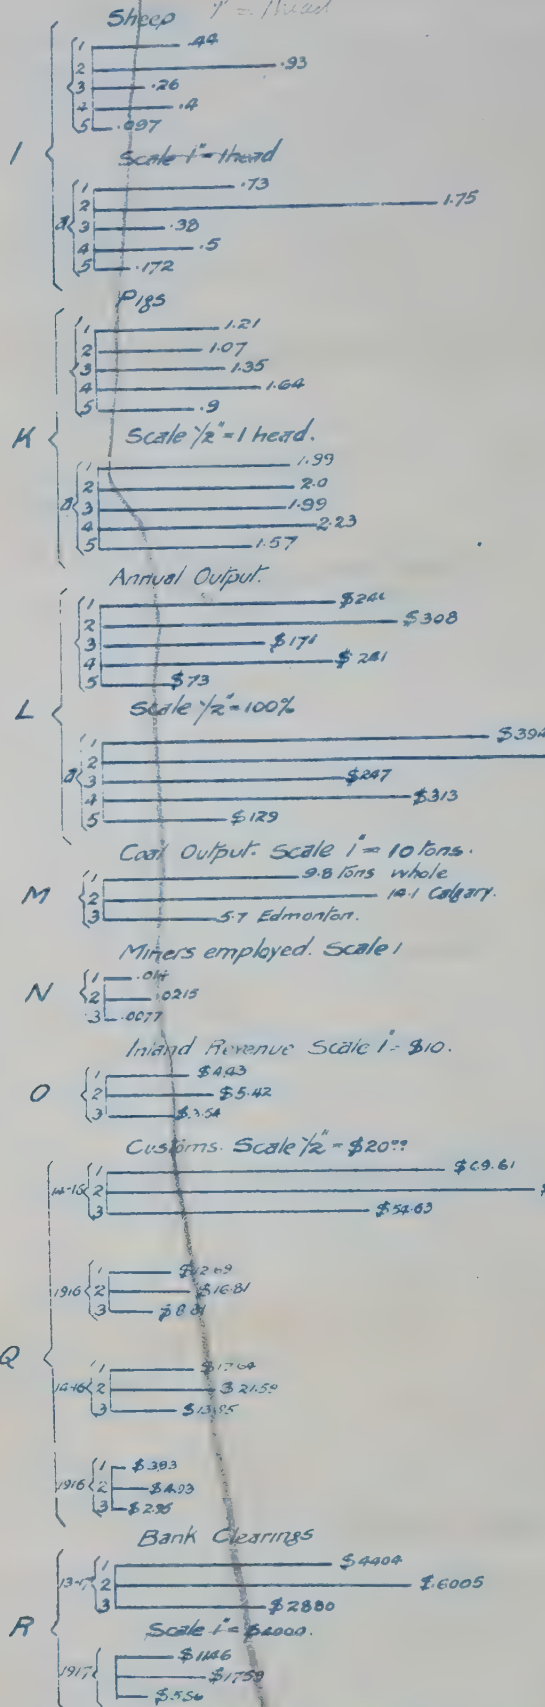 Sheep 1" = 1 head
1 .44
2 .93
3 .26
4 .4
5 .097
I
Scale 1" = 1 head
1 .73
2 1.75
a 3 .38
4 .5
5 .172
Pigs
1 1.21
2 1.07
3 1.35
4 1.64
5 .9
K
Scale 1/2" = 1 head.
1 1.99
2 2.0
a 3 1.99
4 2.23
5 1.57
Annual Output.
1
2 $308
3 $171
4
5 $73
L
Scale 1/2" = 100%
1 $394
2
a 3 $247
4 $313
5 $129
Coal Output. Scale 1" = 10 tons.
1 9.8 tons whole
M 2 14.1 Calgary.
3 5.7 Edmonton.
Miners employed. Scale 1
1 .014
N 2 .0215
3 .0077
Inland Revenue Scale 1" = $10.
1 $4.43
O 2 $5.42
3 $3.54
Customs. Scale 1/2" = $20
1 $69.61
14-16 2 $
3 $54.63
1 $12.69
1916 2 $16.81
3
Q
1 $17.64
14-16 2 $21.59
3 $13.95
1 $3.93
1916 2 $4.93
3 $2.96
Bank Clearings
1 $4404
13-17 2 $6005
3 $2880
R
Scale 1" = $4000.
$1146
1917 $1759
$556